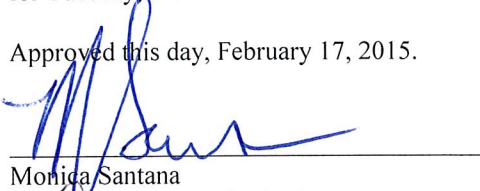 Approved this day, February 17, 2015.
Monica Santana